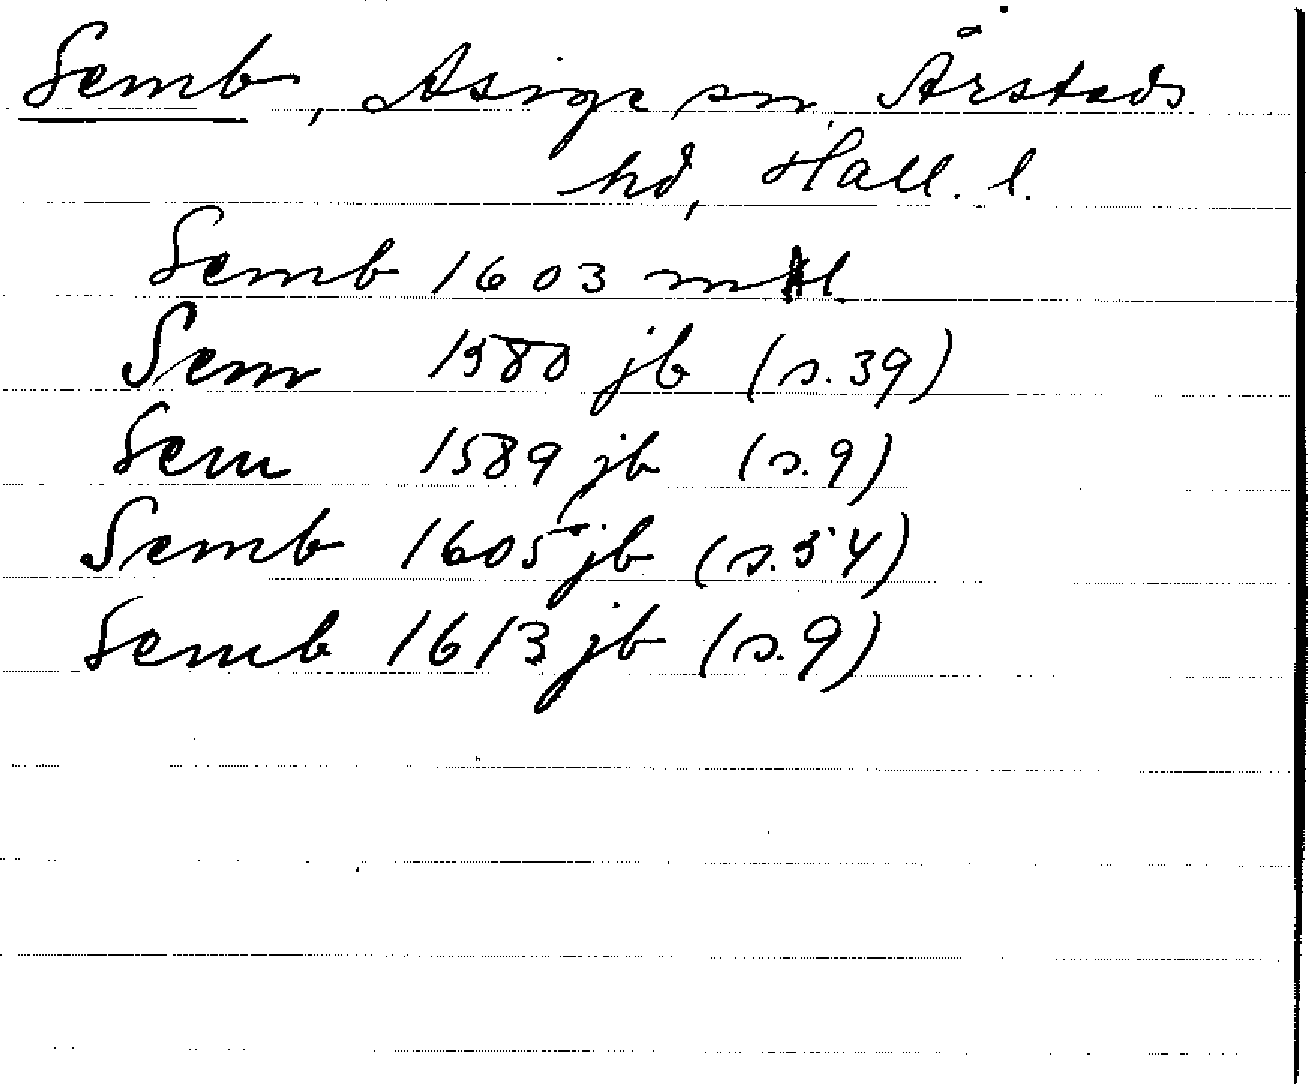 Semb, Asige sn, Årstads
hd, Hall. l.
Semb 1603 mtl
Sem 1580 jb (s. 39)
Sem 1589 jb (s. 9)
Semb 1605 jb (s. 54)
Semb 1613 jb (s. 9)